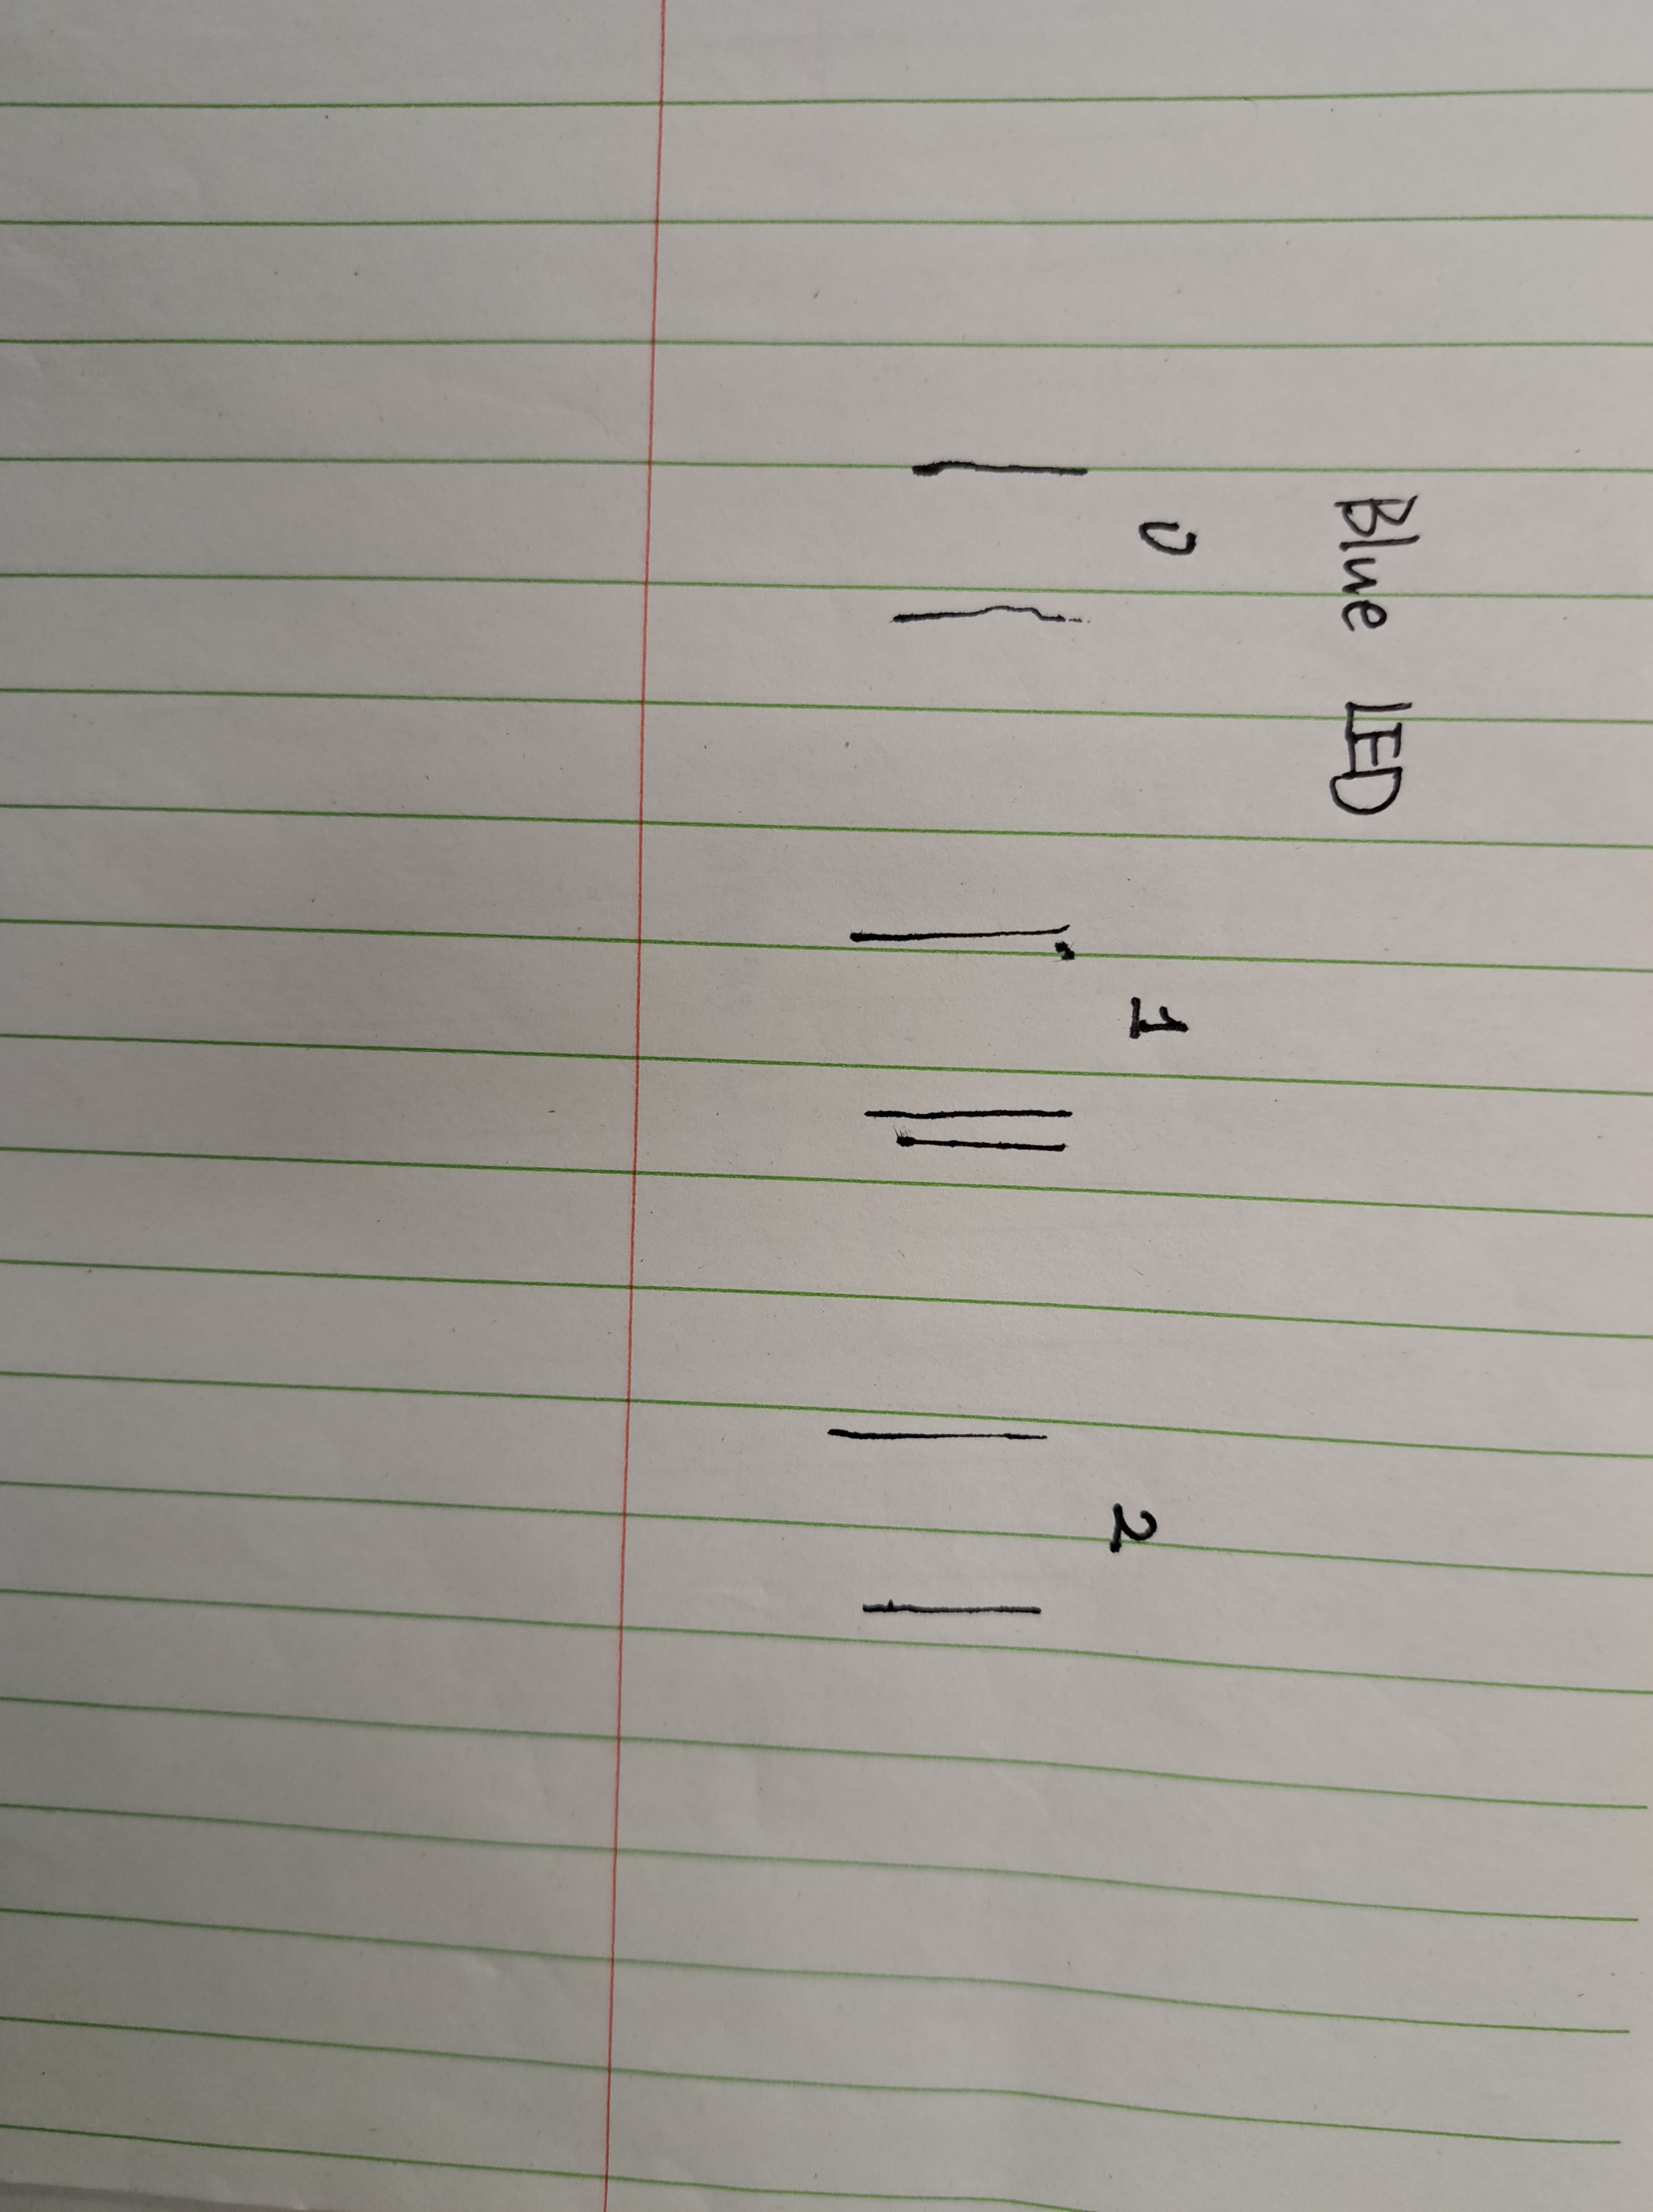 Blue LED
0 1 2